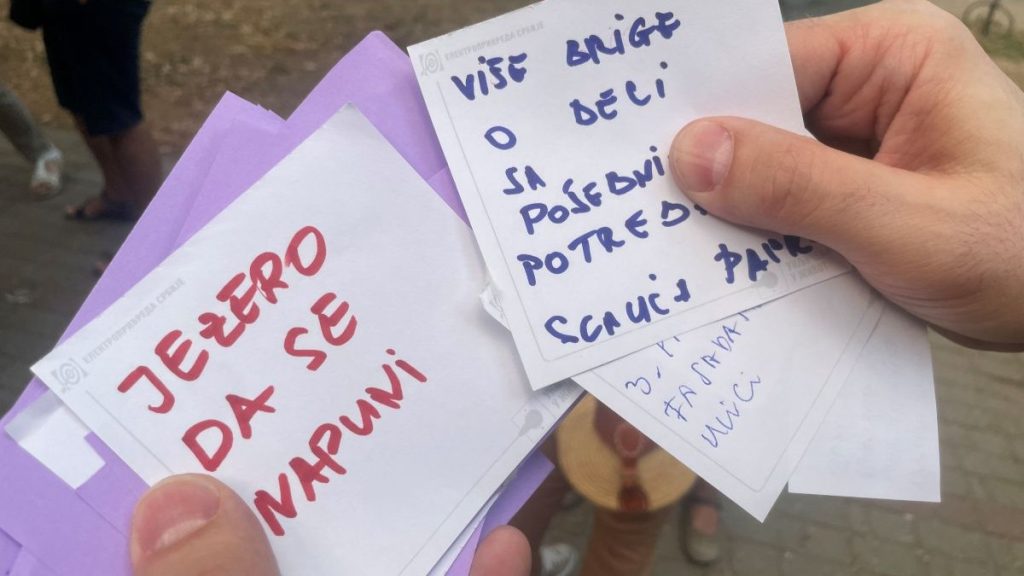 ЕЛЕКТРОПРИВРЕДА СРБИЈЕ
JEZERO
DA SE
NAPUNI
ЕЛЕКТРОПРИВРЕДА СРБИЈЕ
VIŠE BRIGE
O DECI
SA
POSEBNI
POTREB
FASADA
ULICI